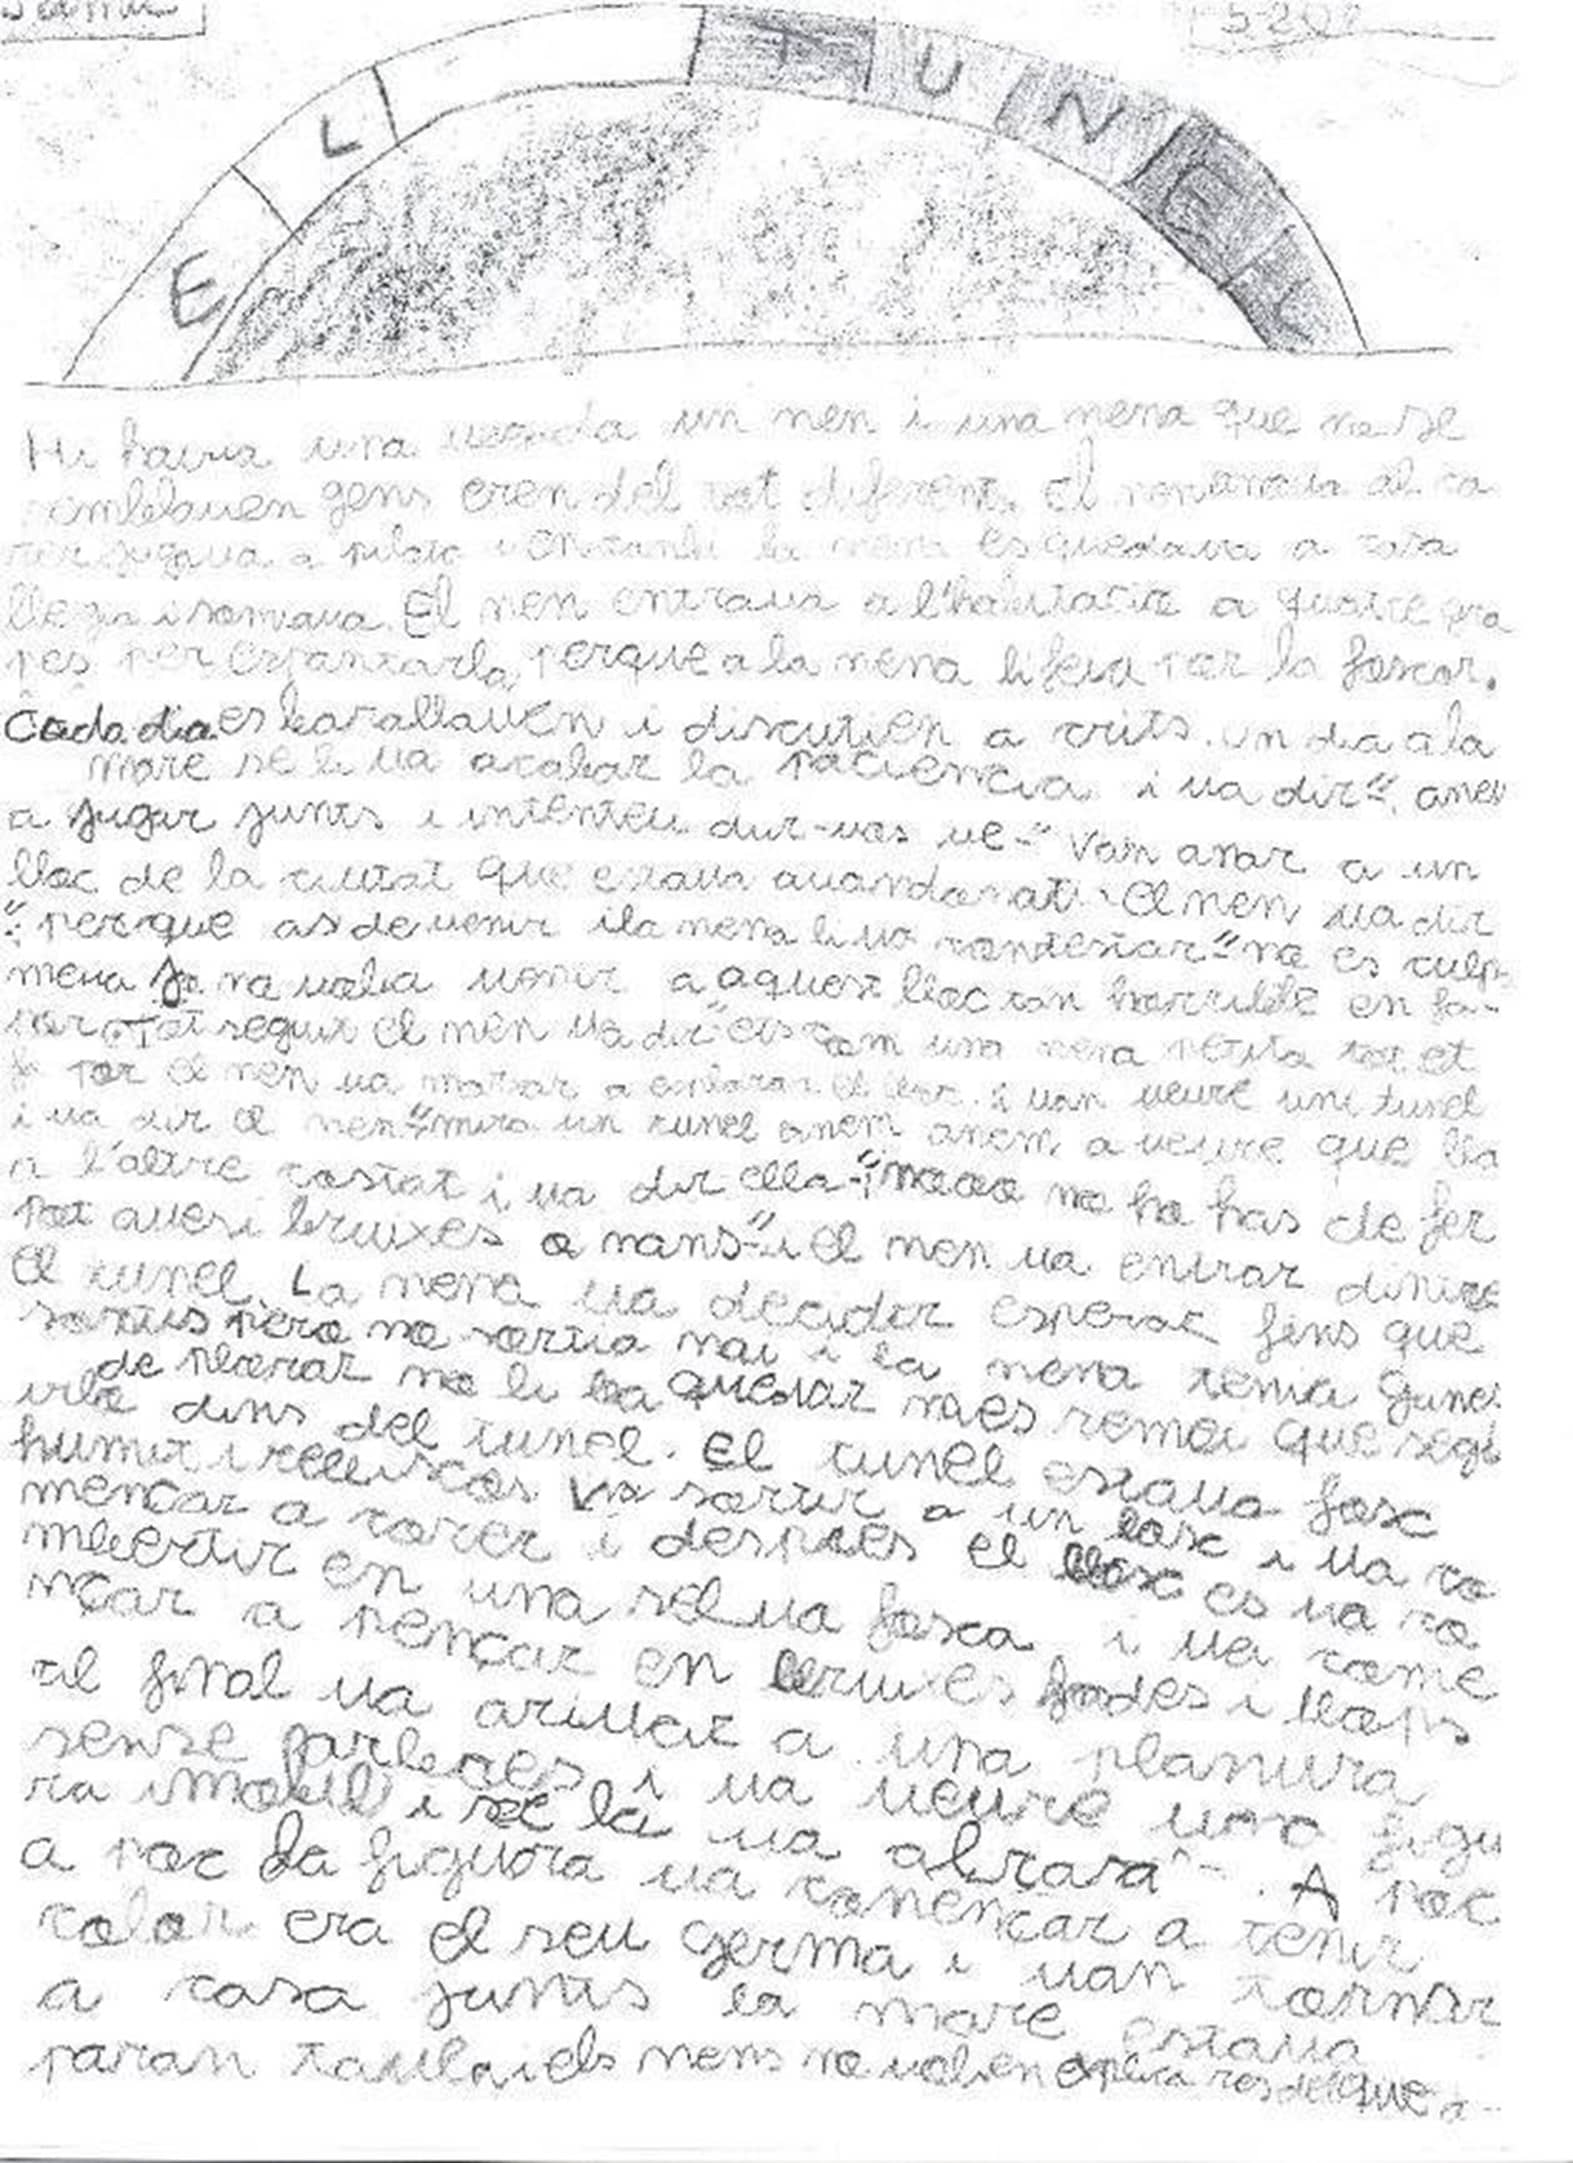 EL TUNEL
Hi havia una vegada un nen i una nena que no se
semblaven gens eren del tot diferent. El nen anava al ca
rer jugava a pilota i entrantu la nena es quedava a casa
llegia i somiava. El nen entrava a l'habitacio a quatre gra
pes per espantarla, perque a la nena li feia por la foscor.
Cada dia es barallaven i discutien a crits. un dia a la
mare se li va acabar la paciencia i va dir“ aneu
a jugar junts i intenteu dur-vos ve-“ Van anar a un
lloc de la ciutat que estava auandonat. El nen va dir
“perque as de venir i la nena li va contestar“no es culpa
meva Jo no volia venir a aquest lloc tan horrible em fa-
por. Tot seguit el nen va dir“ets com una nena petita tot et
fa por el nen va marxar a explorar el lloc. i van veure une tunel
i va dir el nen“mira un tunel anem anem a veure que lla
a l'altre costat i va dir ella-“nooo no ho has de fer
Pot averi bruixes o nans-“i el nen va entrar dintre
El tunel. La nena va decidir esperar fins que
sortis pero no sortia mai i la nena tenia ganes
de plorar no li va quedar mes remei que segi
irlo dins del tunel. El tunel estava fosc
humit i relliscos Va sortir a un bosc i va co
mençar a corer i despres el bosc es va co
mbertir en una selva fosca i va come
nçar a pençar en bruixes fades i llops
al final va arivar a una planura
sense parberes i va veure una figu
ra imobil i se la va abrasa- . A poc
a poc la figuora va conençar a tenir
color era el seu germa i van tornar
a casa junts la mare estava
paran taula i els nens no volien explica res del que a-